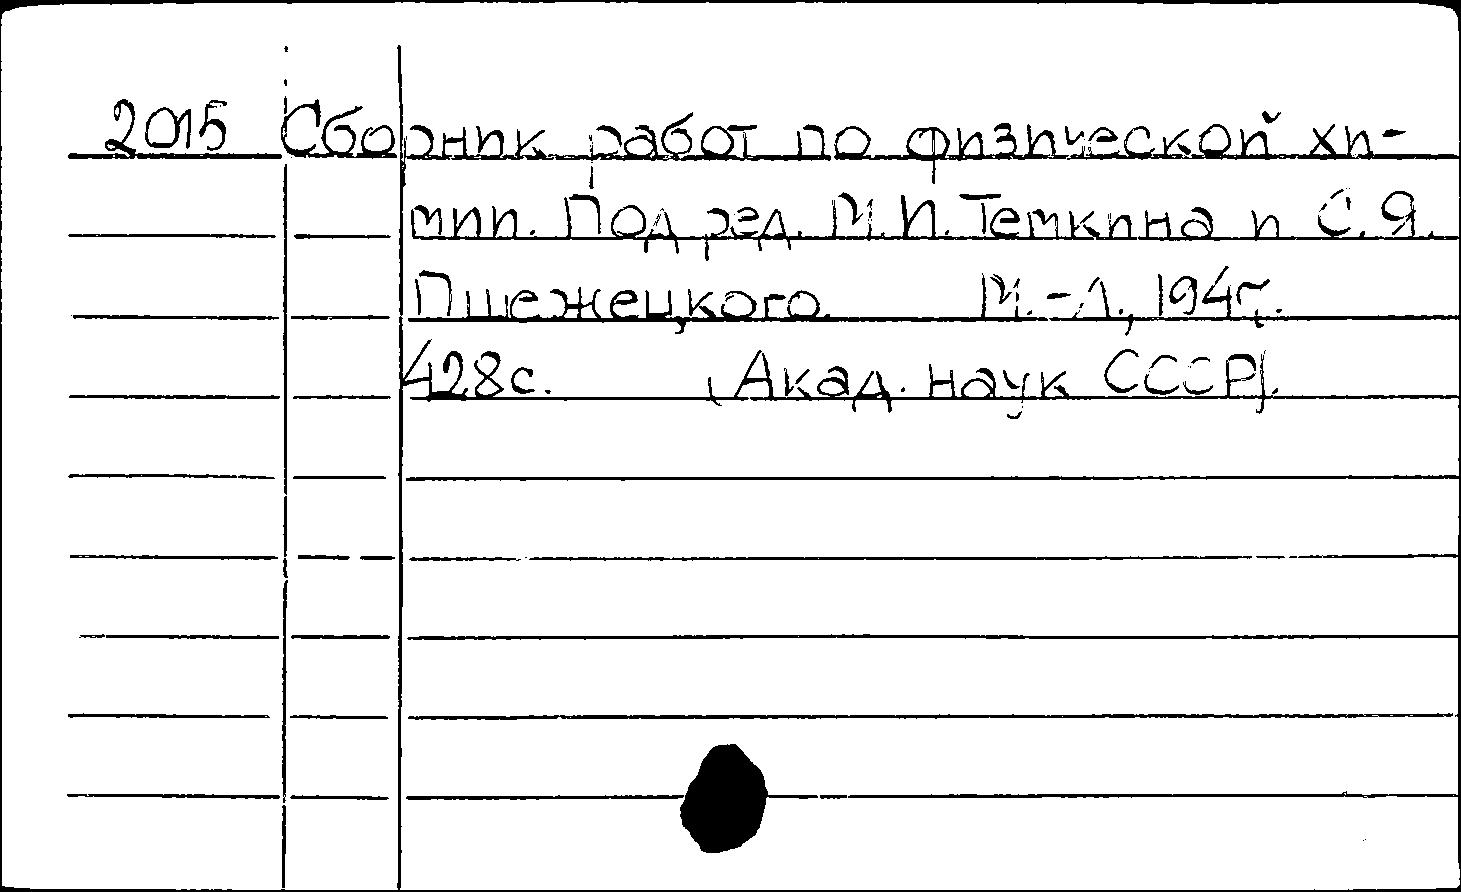 2015 Сборник работ по физической хи-
мии. Под ред. М.И. Темкина и С.Я.
Пшежецкого. М.-Л., 1947.
428с. (Акад. наук СССР).